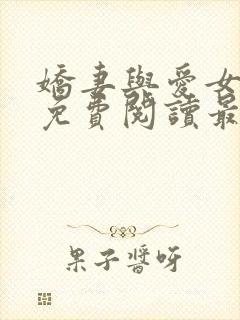 嬌妻與愛女
免費閱讀最
果子醬呀